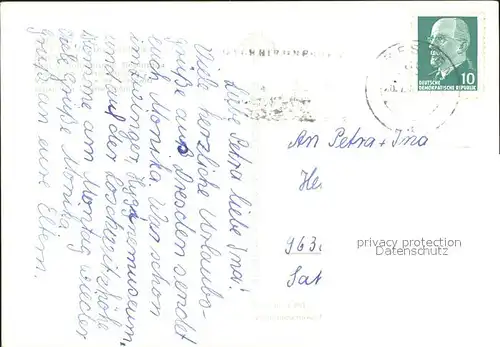 Liebe Petra liebe Ina!
Viele herzliche Urlaubs-
grüße aus Dresden sendet
euch Monika. War schon
im Hygienemuseum,
und auf der Loschwitzhöhe
Komme am Montag wieder
viele grüße Monika.
grüße an eure Eltern.
DEUTSCHE
DEMOKRATISCHE REPUBLIK
10
An Petra + Ina
He
963
Sat
privacy protection
Datenschutz